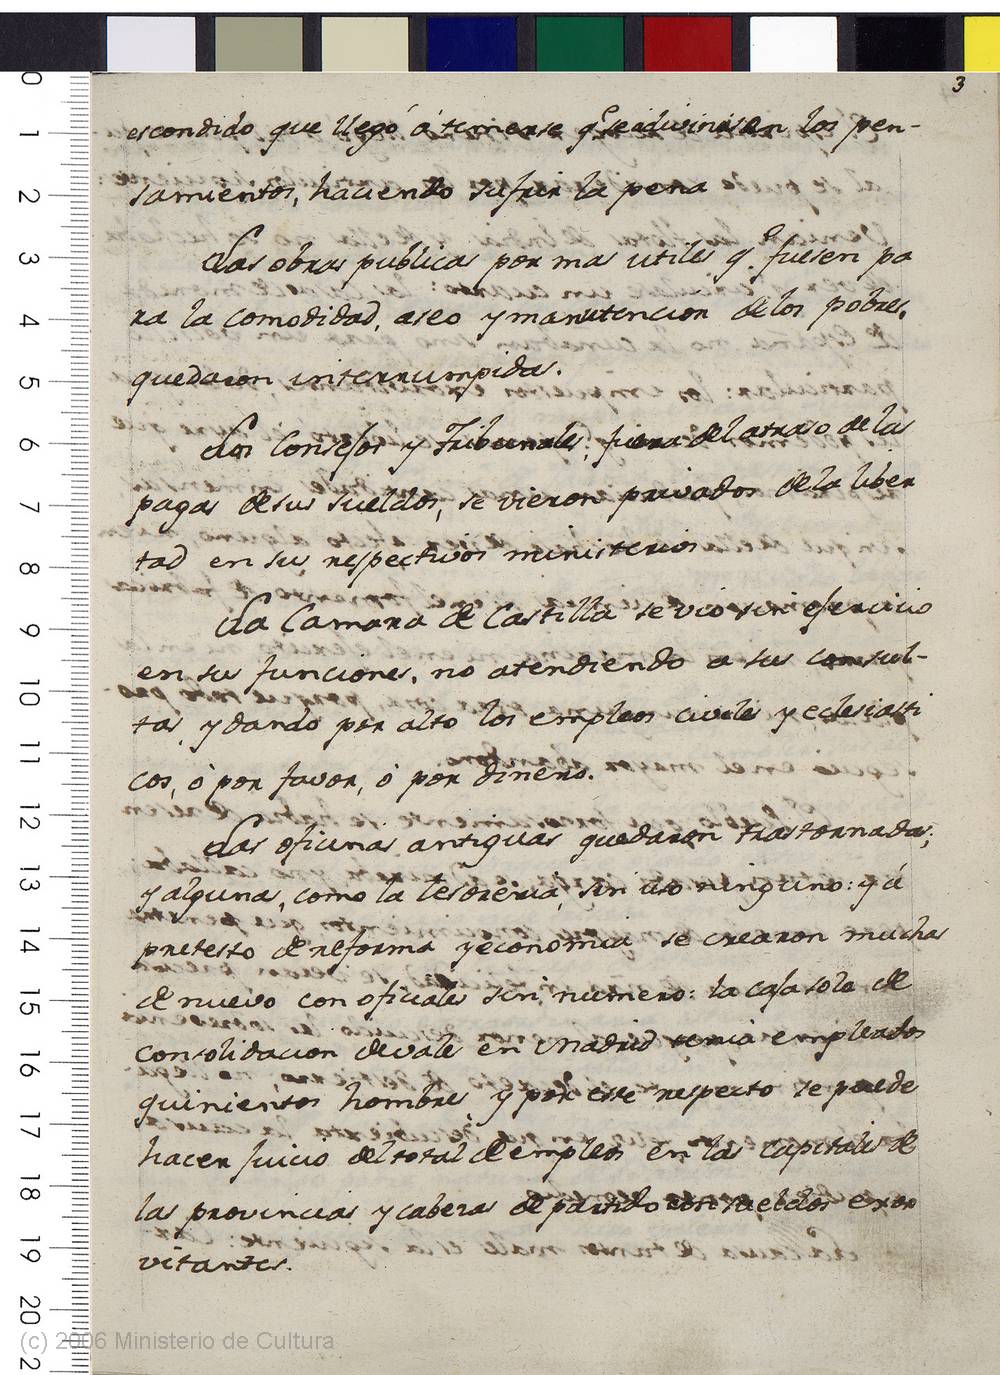 3
escondido que llegó á temerse q.e se adivinasen los pen-
samientos, haciendo sufrir la pena
Las obras publicas por mas utiles q.e fuesen pa
ra la comodidad, aseo y manutencion de los pobres,
quedaron interrumpidas.
Los Consejos y Tribunales, fuera del atraso de las
pagas de sus sueldos, se vieron privados de la liber
tad en sus respectivos ministerios
La Camara de Castilla se vió sin ejercicio
en sus funciones, no atendiendo a sus consul-
tas, y dando por alto los empleos civiles y eclesiasti
cos, ó por favor, ó por dinero.
Las oficinas antiguas quedaron trastornadas;
y algunas, como la Tesoreria, sin uso ninguno: y á
pretesto de reforma y economia se crearon muchas
de nuevo con oficiales sin numero: la casa sola de
consolidacion de vales en Madrid tenia empleados
quinientos hombres, y por este respecto se puede
hacer juicio del total de empleos en las capitales de
las provincias y cabezas de partido con sueldos exor
vitantes.
0
1
2
3
4
5
6
7
8
9
10
11
12
13
14
15
16
17
18
19
20
2
(c) 2006 Ministerio de Cultura